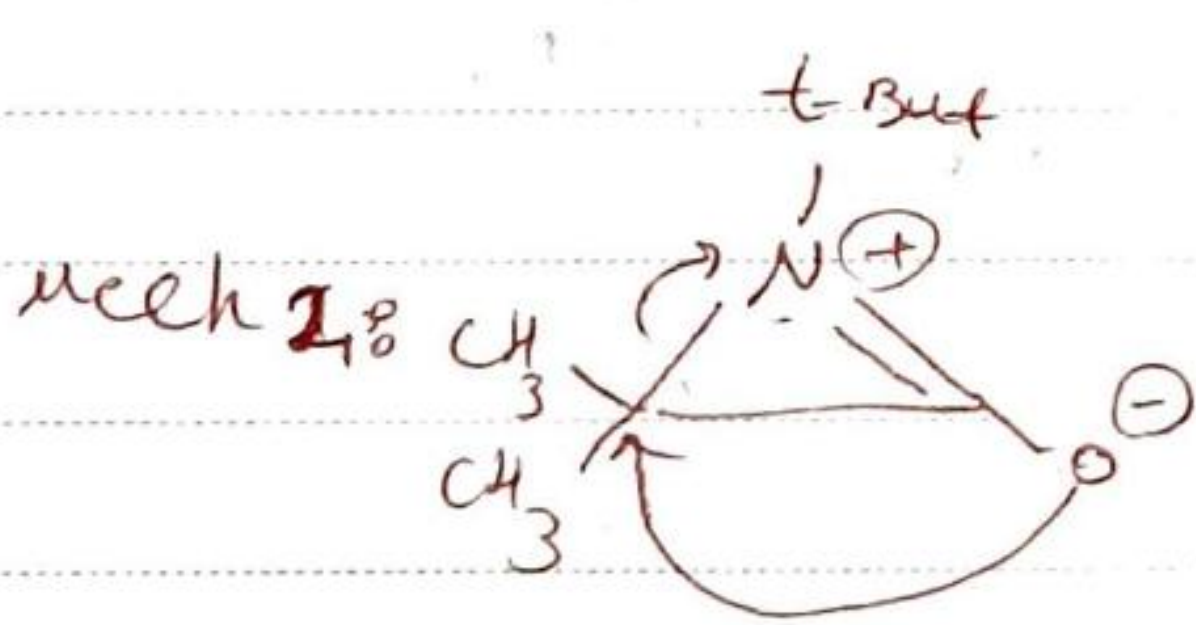 t-But
N +
Mech 1:
CH3
-
CH3
O